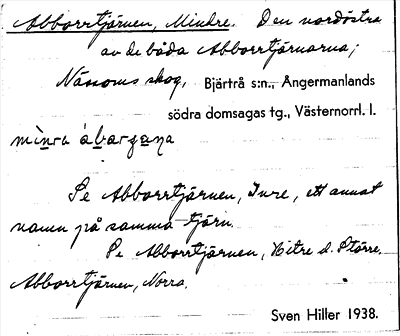 Abborrtjärnen, Mindre. Den nordöstra
av de båda Abborrtjärnarna;
Nässoms skog, Bjärtrå s:n., Ångermanlands
södra domsagas tg., Västernorrl. l.
Se Abborrtjärnen, Inre, ett annat
namn på samma tjärn.
Se Abborrtjärnen, Yttre d. Större.
Abborrtjärnen, Norra.
Sven Hiller 1938.